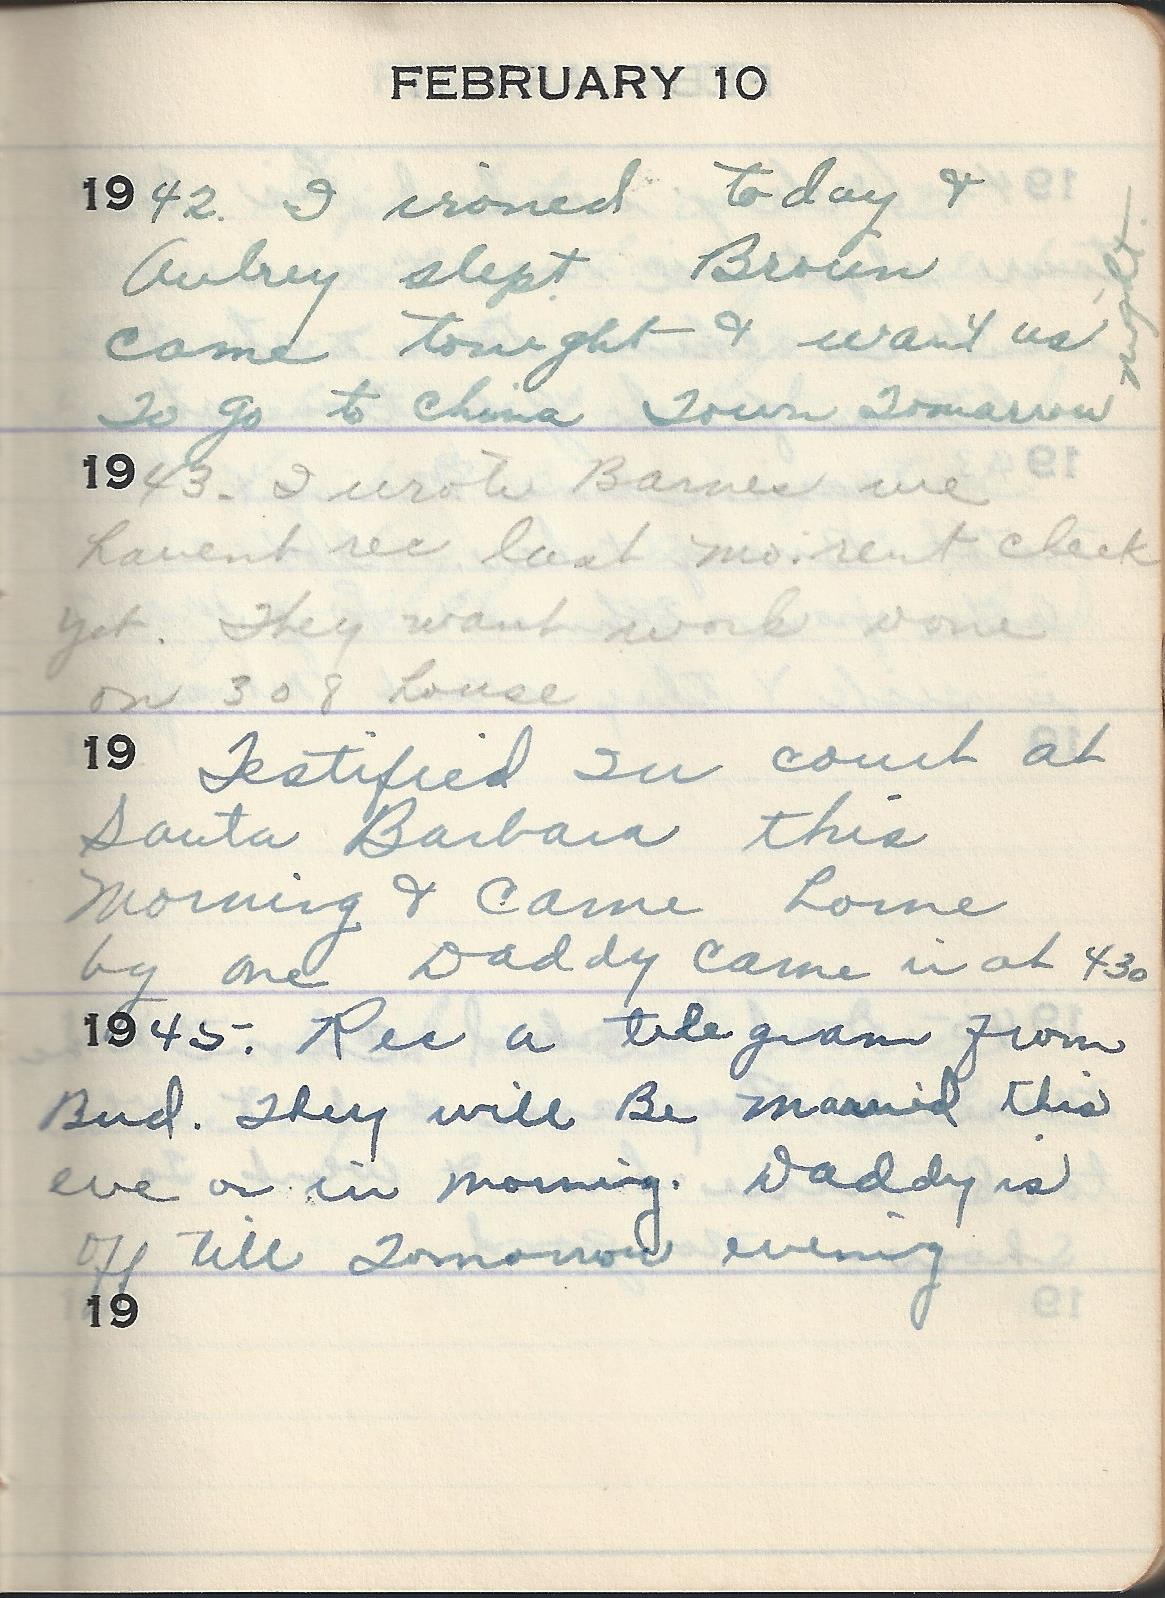 FEBRUARY 10
1942. I ironed today &
Aubrey slept. Brown
came tonight & want us
To go to China Town Tomarrow
night.
1943. I wrote Barnes we
havent rec last mo. rent check
yet. They want work done
on 308 house
19 Testified In court at
Santa Barbara this
Morning & Came home
by one Daddy came in at 430
1945. Rec a telegram from
Bud. They will Be married this
eve or in morning. Daddy is
off till Tomorrow evening
19